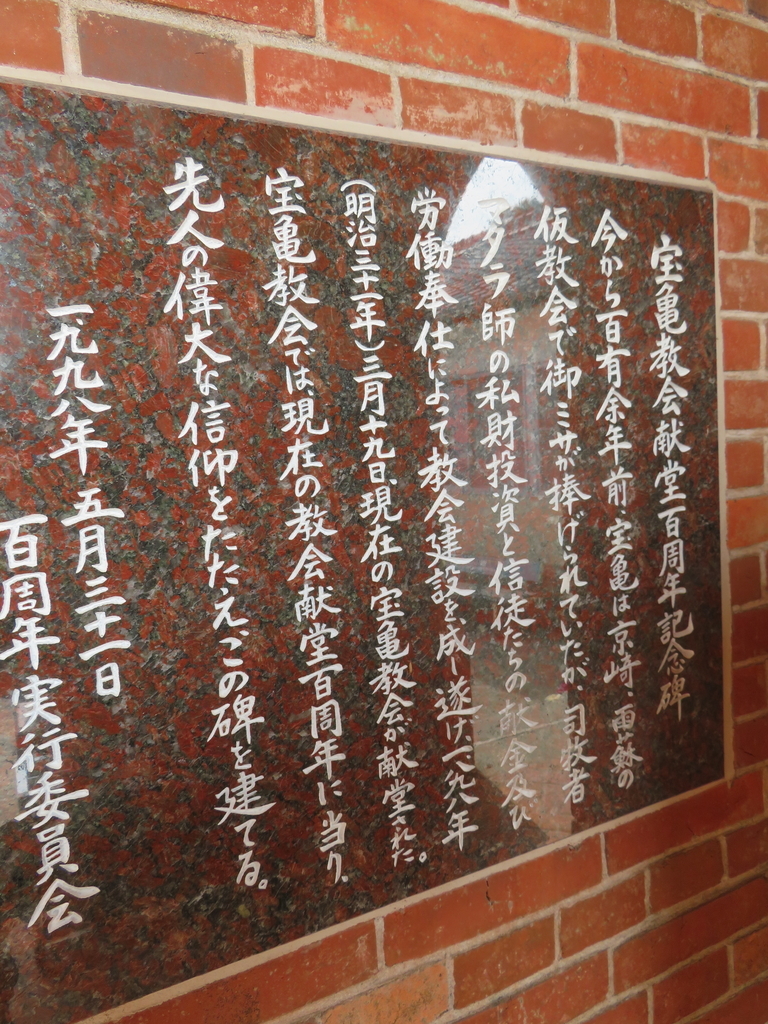 宝亀教会献堂百周年記念碑
今から百有余年前、宝亀は京崎・雨蘇の
仮教会で御ミサが捧げられていたが、司牧者
マタラ師の私財投資と信徒たちの献金及び
労働奉仕によって教会建設を成し遂げ、一八九八年
(明治三十一年)三月十九日、現在の宝亀教会が献堂された。
宝亀教会では、現在の教会献堂百周年に当り、
先人の偉大な信仰をたたえ、この碑を建てる。
一九九八年 五月三十一日
百周年実行委員会